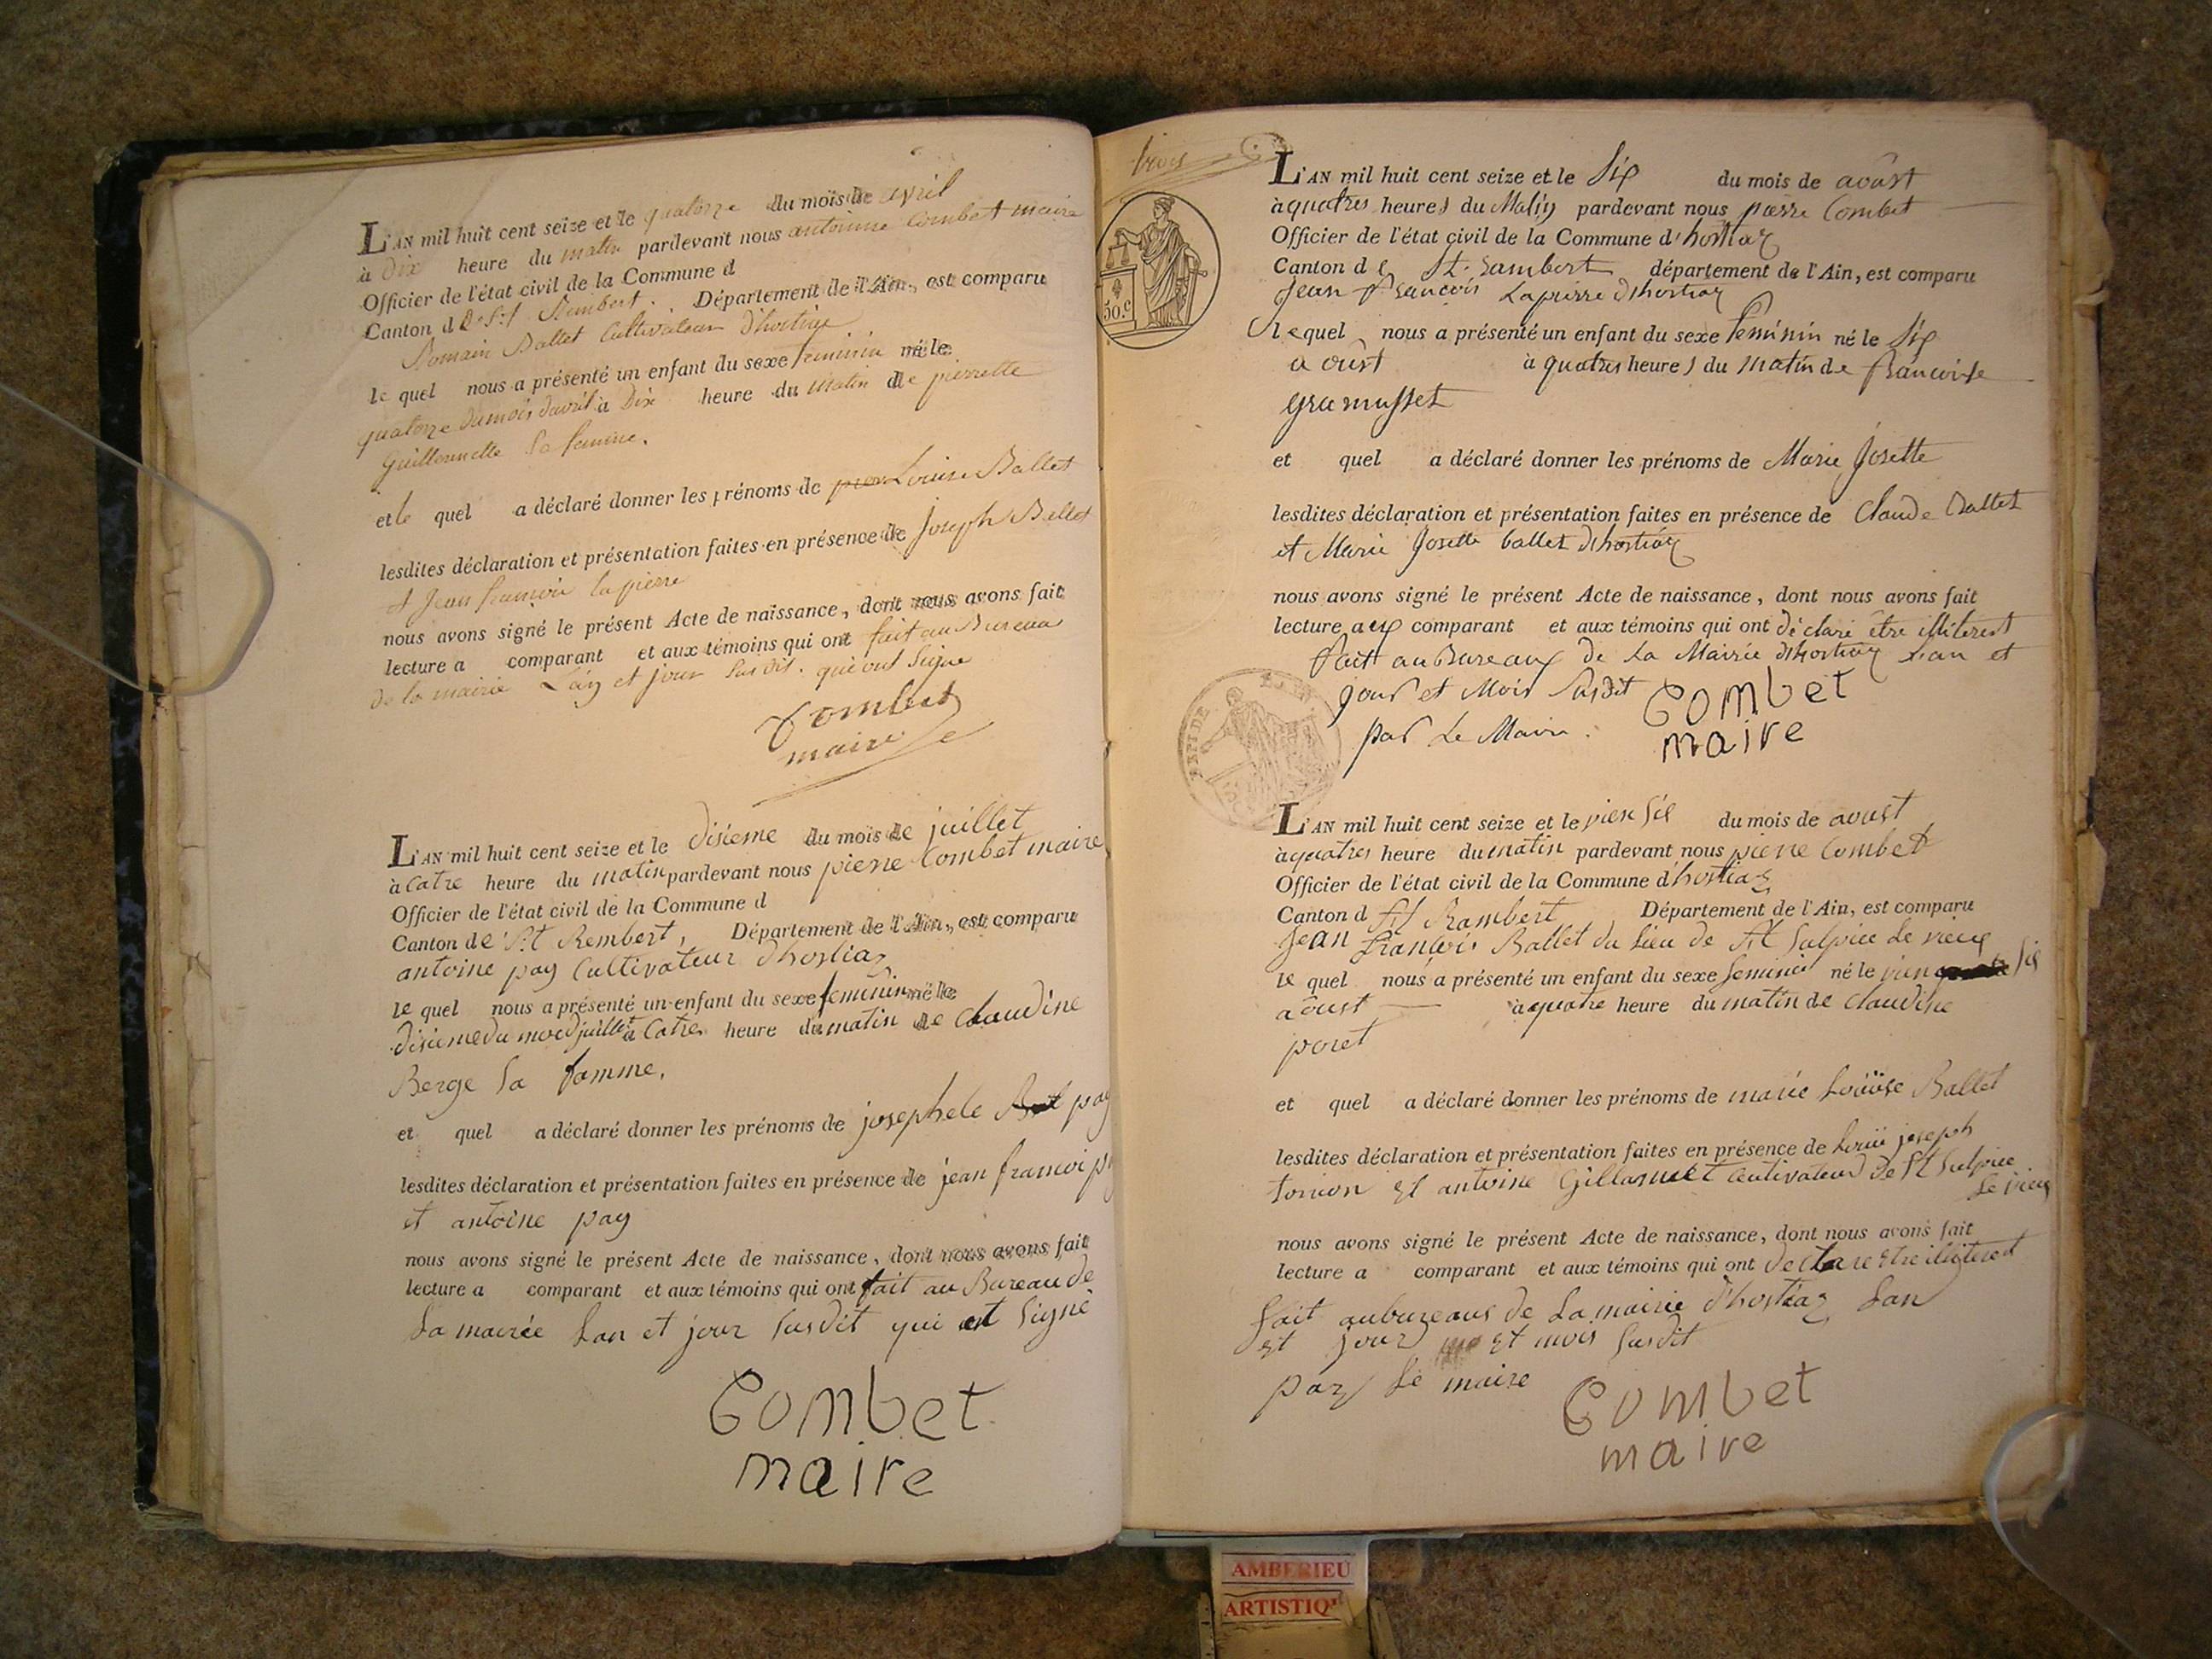 L'AN mil huit cent seize et le quatorze du mois de avril
à Dix heure du matin pardevant nous antoinne Combet maire
Officier de l'état civil de la Commune d
Canton d e St Rambert. Département de l'Ain, est comparu
Romain Ballet Cultivateur d'hostiaz
le quel nous a présenté un enfant du sexe feminin né le
quatorze du mois d'avril à Dix heure du matin de pierrette
Guillermette Sa femme.
et le quel a déclaré donner les prénoms de Louise Ballet
lesdites déclaration et présentation faites en présence de Joseph Ballet
et Jean francois lapierre
nous avons signé le présent Acte de naissance, dont nous avons fait
lecture a comparant et aux témoins qui ont fait au Bureau
de la mairie L'an et jour Susdit. qui ont Signe
Combet
maire
L'AN mil huit cent seize et le disieme du mois de juillet
à Catre heure du matin pardevant nous pierre Combet maire
Officier de l'état civil de la Commune d
Canton d e St Rembert, Département de l'Ain, est comparu
antoine pay Cultivateur d'hostiaz
le quel nous a présenté un enfant du sexe feminin né le
disieme du moi djuillet à Catre heure du matin de Claudine
Berge Sa famme.
et quel a déclaré donner les prénoms de josephete pay
lesdites déclaration et présentation faites en présence de jean francoi
et antoine pay
nous avons signé le présent Acte de naissance, dont nous avons fait
lecture a comparant et aux témoins qui ont fait au Bureau de
La mairée Lan et jour Susdit qui ont Signé
Combet
maire
trois
50.c
L'AN mil huit cent seize et le Six du mois de août
à quatres heures du Matin pardevant nous pierre Combet
Officier de l'état civil de la Commune d'hostiaz
Canton d e St. Rambert département de l'Ain, est comparu
Jean francois Lapierre d'hostiaz
le quel nous a présenté un enfant du sexe feminin né le Six
aoust à quatres heures du matin de francoise
gramusset
et quel a déclaré donner les prénoms de Marie Josette
lesdites déclaration et présentation faites en présence de Claude Ballet
et Marie Josette ballet d'hostiaz
nous avons signé le présent Acte de naissance, dont nous avons fait
lecture aux comparant et aux témoins qui ont déclaré être illiterest
fait au Bureaux de La Mairie d'hostiaz L'an et
jour et Mois Susdit Combet
par Le Maire. maire
L'AN mil huit cent seize et le vien Sis du mois de aoust
à quatres heure du matin pardevant nous pierre Combet
Officier de l'état civil de la Commune d'hostiaz
Canton d St Rambert Département de l'Ain, est comparu
Jean francois Ballet du Lieu de St Sulpice Le vieux
le quel nous a présenté un enfant du sexe feminin né le vien Sis
aoust à quatre heure du matin de claudine
poret
et quel a déclaré donner les prénoms de marie Louise Ballet
lesdites déclaration et présentation faites en présence de Louis joseph
et antoine Gillarmet Cultivateur de St Sulpice
Le vieux
nous avons signé le présent Acte de naissance, dont nous avons fait
lecture a comparant et aux témoins qui ont declare être
fait au bureaux de La mairie d'hostiaz Lan
et jour et mois Susdit
par Le maire Combet
maire
AMBERIEU
ARTISTIQ